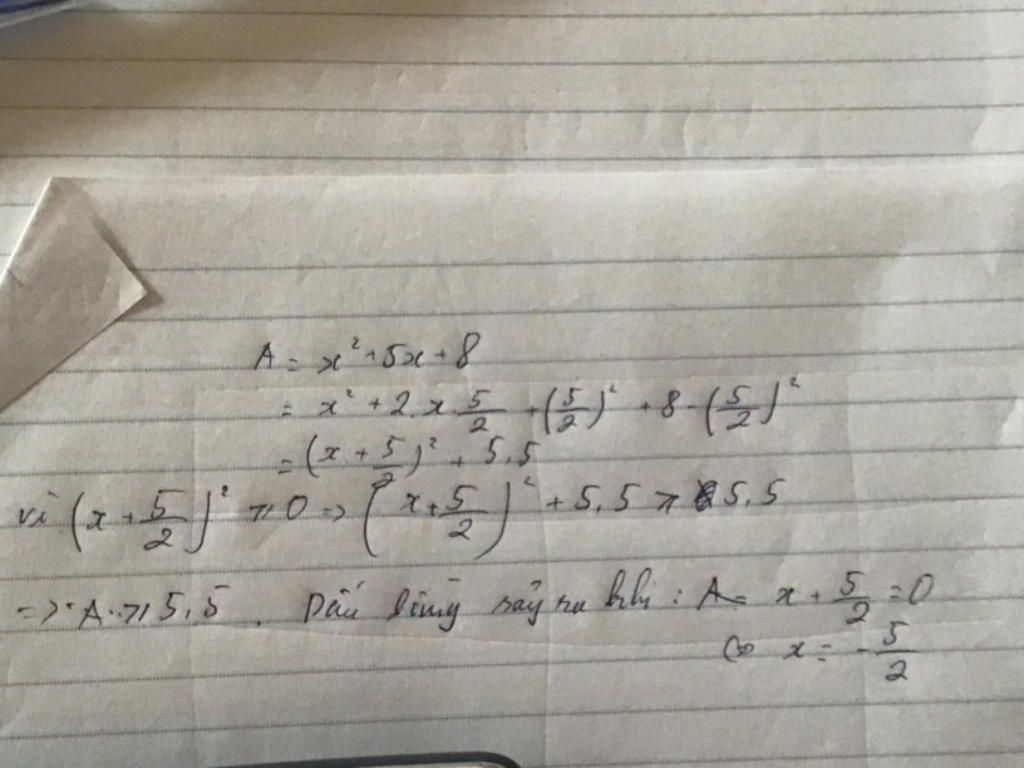 A = x² + 5x + 8
= x² + 2.x 5/2 + (5/2)² + 8 - (5/2)²
= (x + 5/2)² + 5,5
vì (x + 5/2)² ≥ 0 => (x + 5/2)² + 5,5 ≥ 5,5
=> A ≥ 5,5. Dấu bằng xảy ra khi: A = x + 5/2 = 0
⇔ x = -5/2